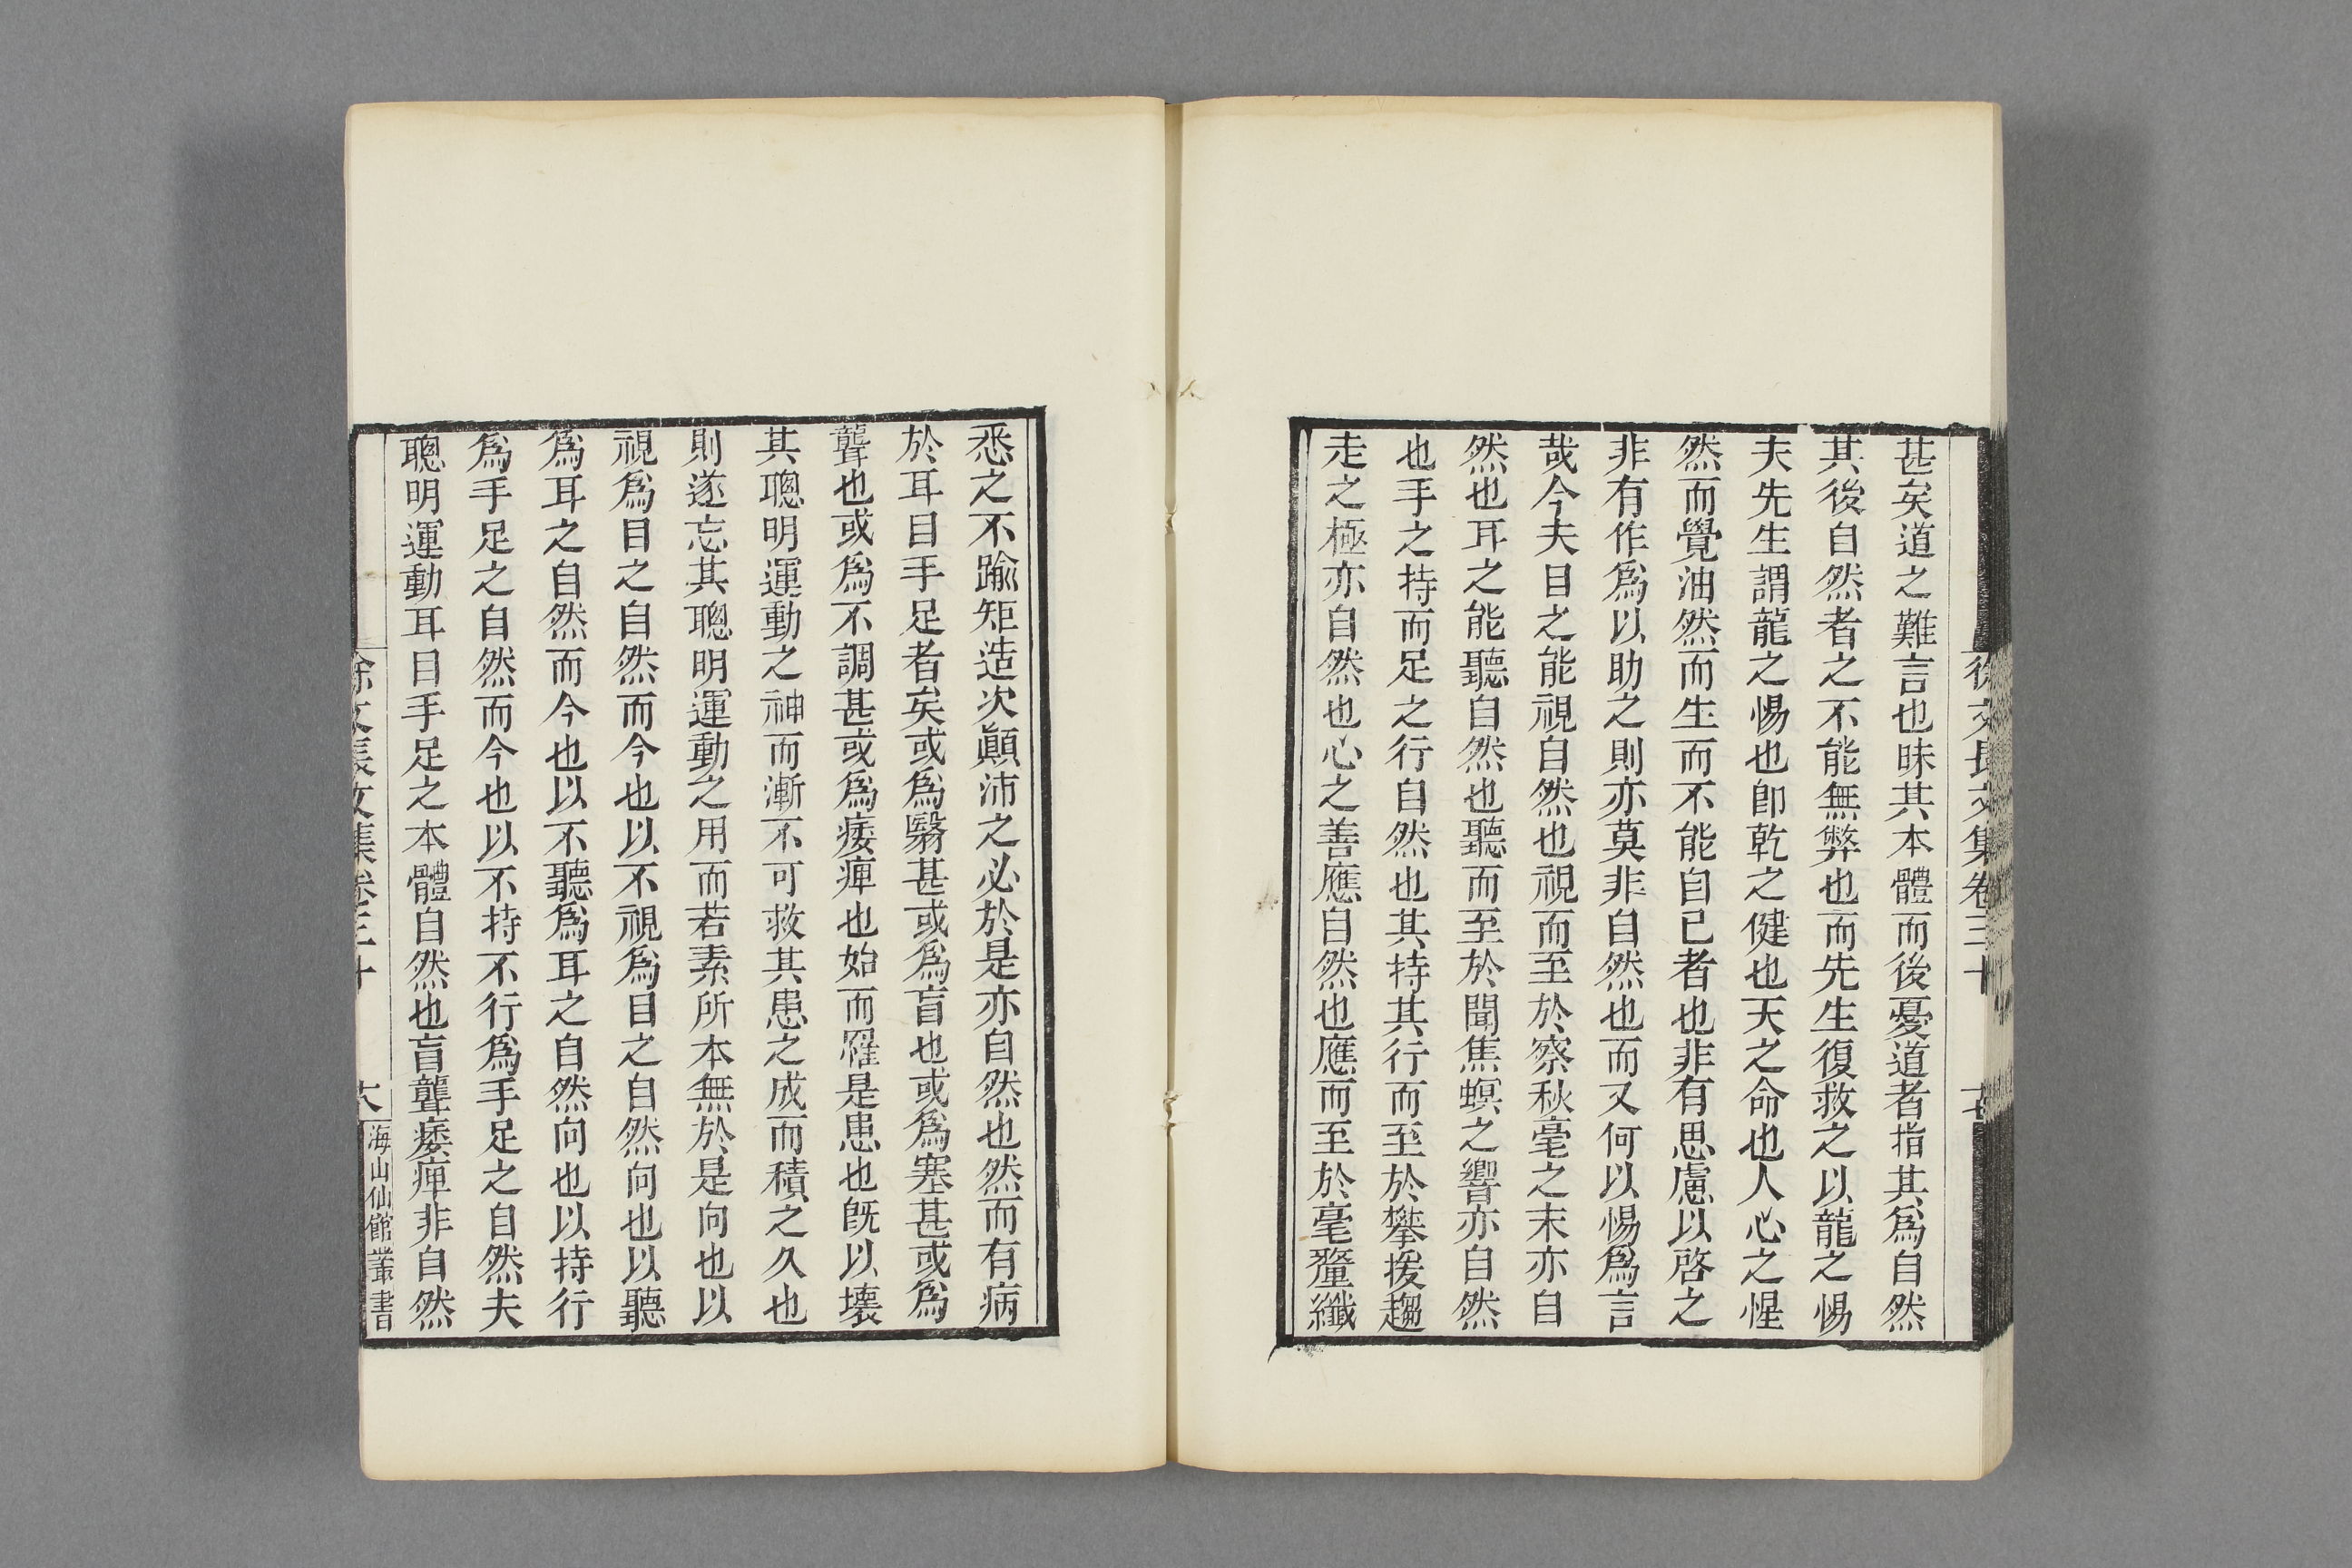 徐文長文集卷三十
甚矣道之難言也昧其本體而後憂道者指其爲自然
其後自然者之不能無弊也而先生復救之以龍之惕
夫先生謂龍之惕也卽乾之健也天之命也人心之惺
然而覺油然而生而不能自已者也非有思慮以啓之
非有作爲以助之則亦莫非自然也而又何以惕爲言
哉今夫目之能視自然也視而至於察秋毫之末亦自
然也耳之能聽自然也聽而至於聞焦螟之響亦自然
也手之持而足之行自然也其持其行而至於攀援趨
走之極亦自然也心之善應自然也應而至於毫釐纖
悉之不踰矩造次顚沛之必於是亦自然也然而有病
於耳目手足者矣或爲翳甚或爲盲也或爲塞甚或爲
聾也或爲不調甚或爲痿痺也始而罹是患也旣以壞
其聰明運動之神而漸不可救其患之成而積之久也
則遂忘其聰明運動之用而若素所本無於是向也以
視爲目之自然而今也以不視爲目之自然向也以聽
爲耳之自然而今也以不聽爲耳之自然向也以持行
爲手足之自然而今也以不持不行爲手足之自然夫
聰明運動耳目手足之本體自然也盲聾痿痺非自然
徐文長文集卷三十
六
海山仙館叢書